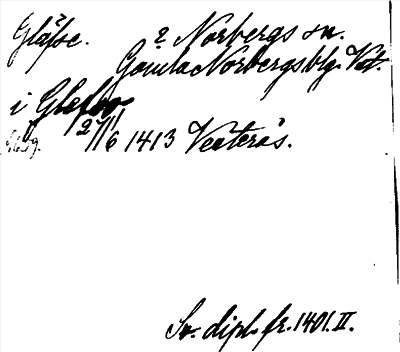 Gläfse. ? Norbergs sn.
Gamla Norbergs blg. Vstm.
i Glefsa
27/6 1413 Vesterås.
Sv. dipl. fr. 1401. II.